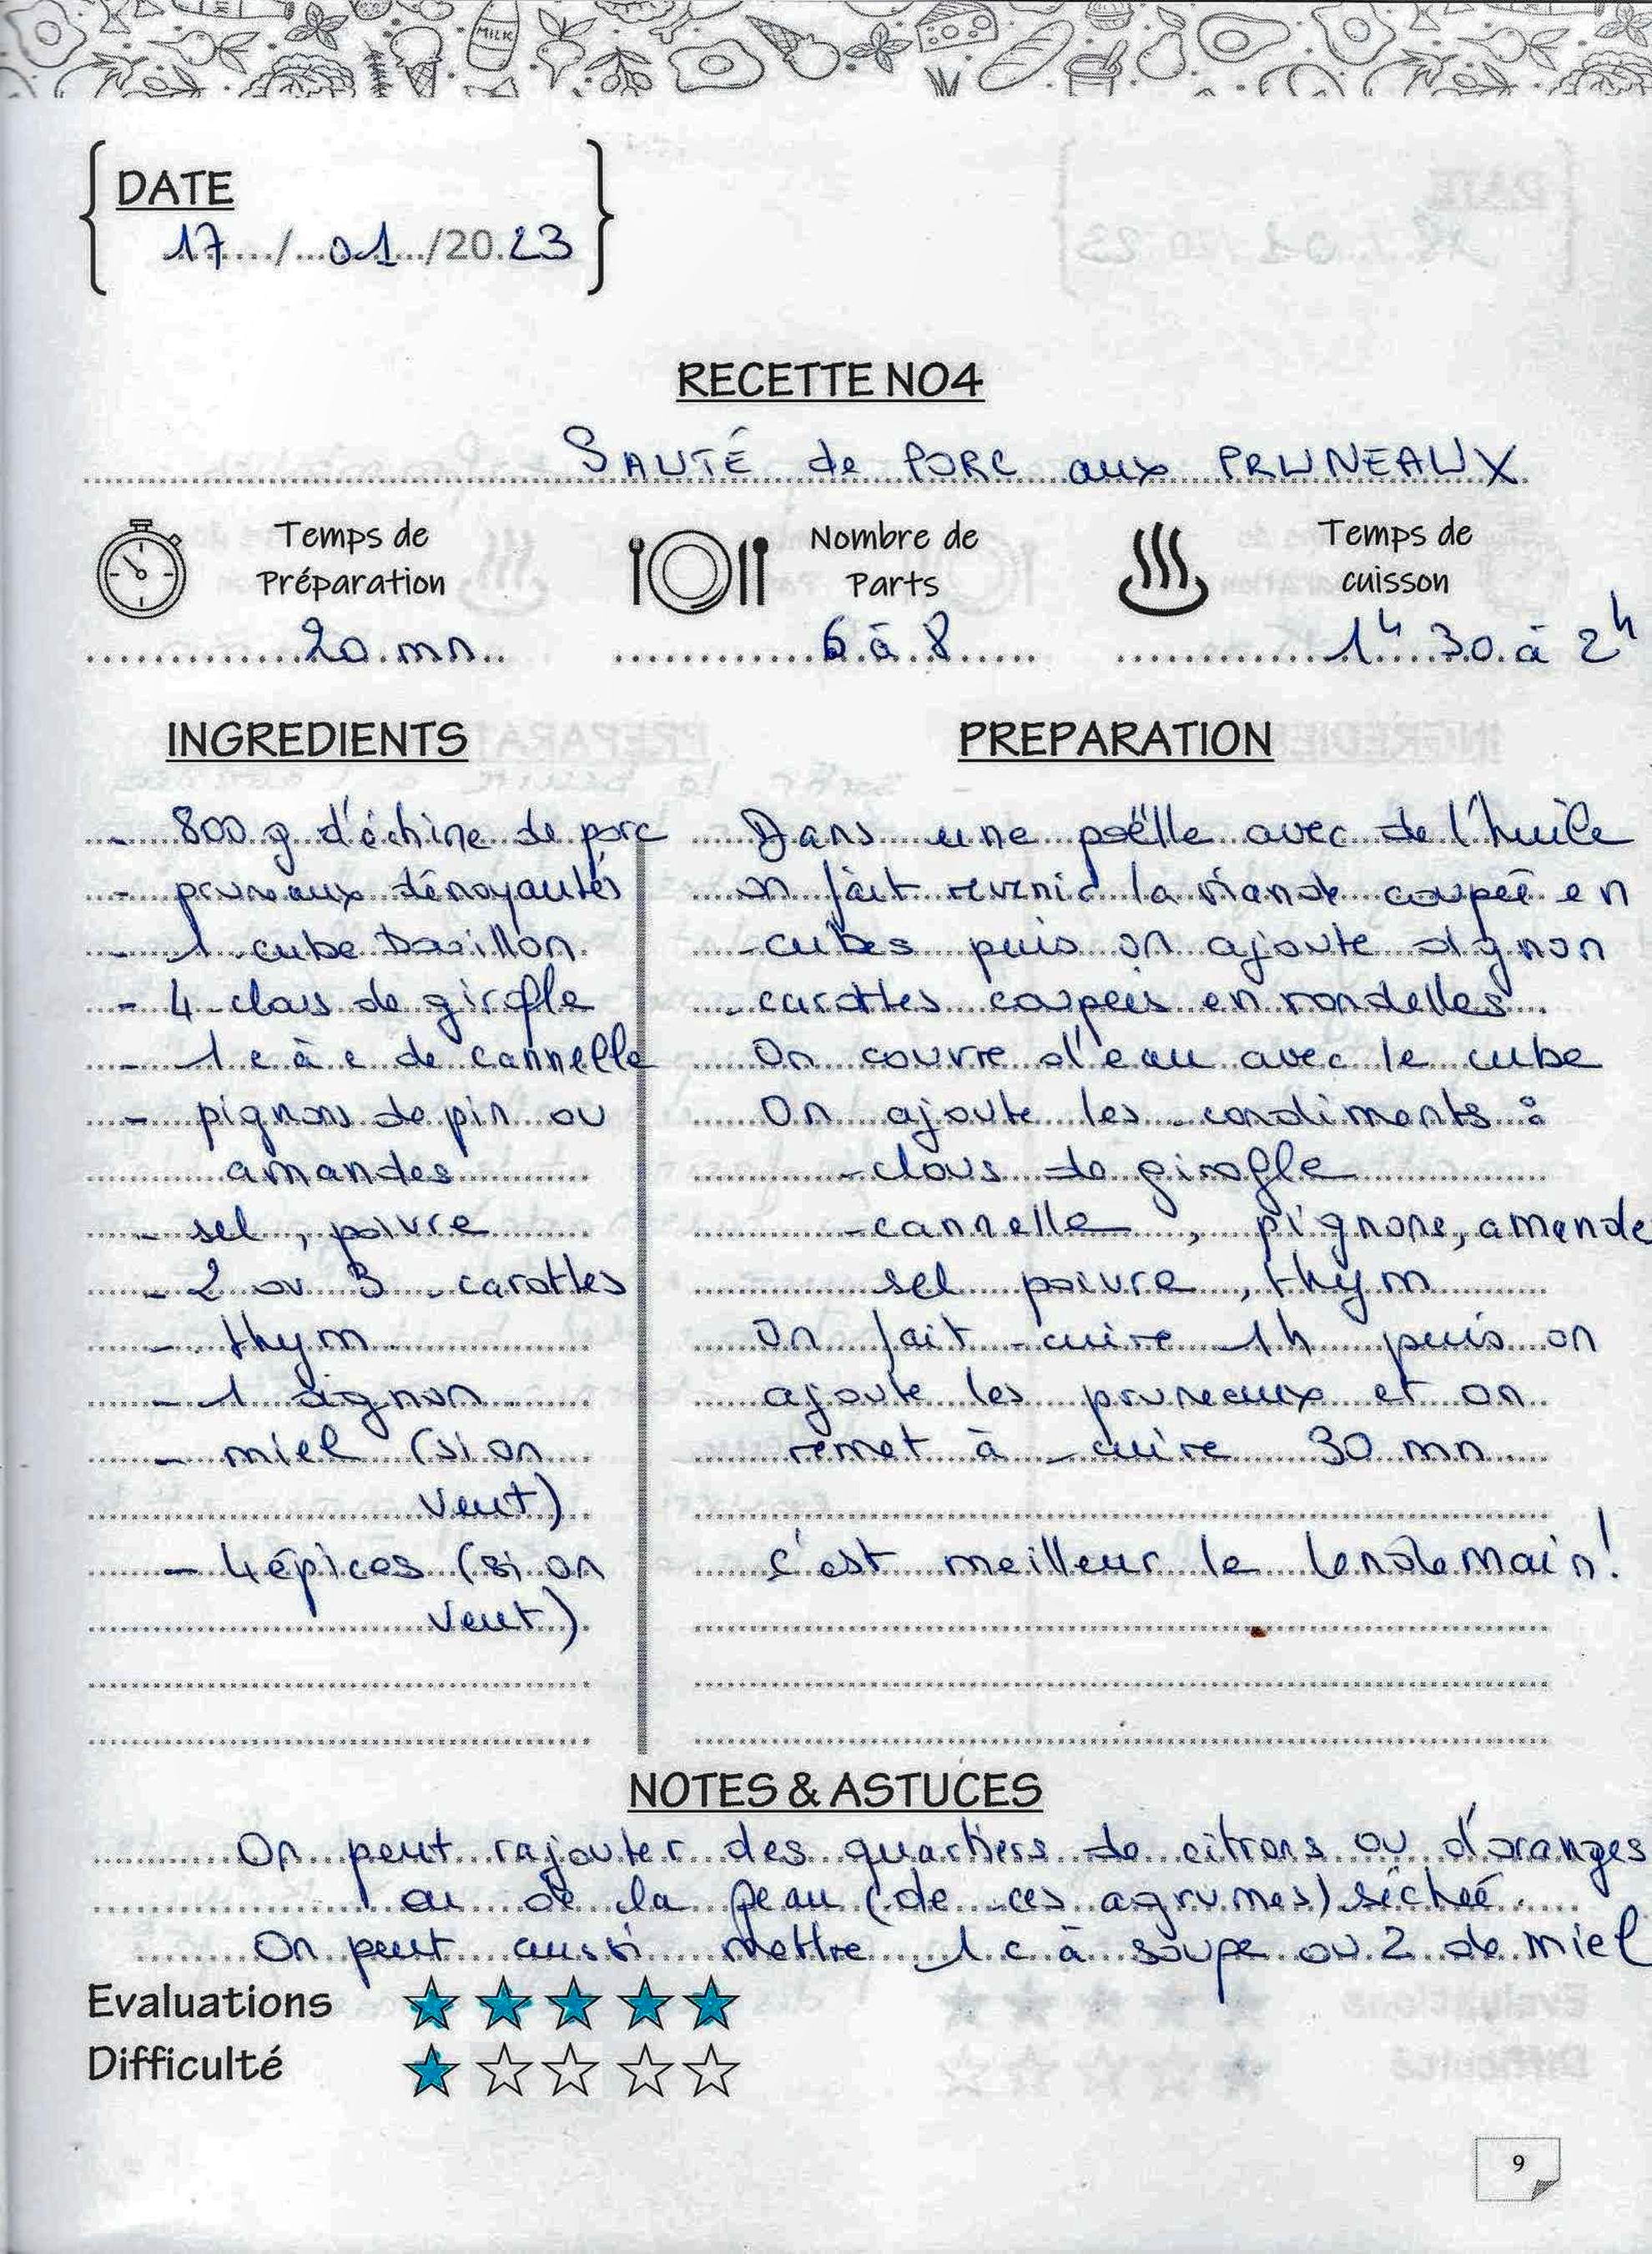 MILK
DATE
17 / 01 /2023
RECETTE NO4
SAUTÉ de PORC aux PRUNEAUX
Temps de Préparation
20 mn
Nombre de Parts
6 à 8
Temps de cuisson
1h 30 à 2h
INGREDIENTS
- 800 g d'échine de porc
- pruneaux dénoyautés
- 1 cube bouillon
- 4 clous de girofle
- 1 c à c de cannelle
- pignons de pin ou
amandes
- sel, poivre
- 2 ou 3 carottes
- thym
- 1 oignon
- miel (si on
veut)
- 4 épices (si on
veut)
PREPARATION
Dans une poëlle avec de l'huile
on fait revenir la viande coupée en
cubes puis on ajoute oignon
carottes coupées en rondelles
On couvre d'eau avec le cube
On ajoute les condiments :
- clous de girofle
- cannelle, pignons, amande
sel poivre, thym
On fait cuire 1h puis on
ajoute les pruneaux et on
remet à cuire 30 mn
c'est meilleur le lendemain!
NOTES & ASTUCES
On peut rajouter des quartiers de citrons ou d'oranges
ou de la peau (de ces agrumes) séchée.
On peut aussi mettre 1 c à soupe ou 2 de miel
Evaluations
Difficulté
9